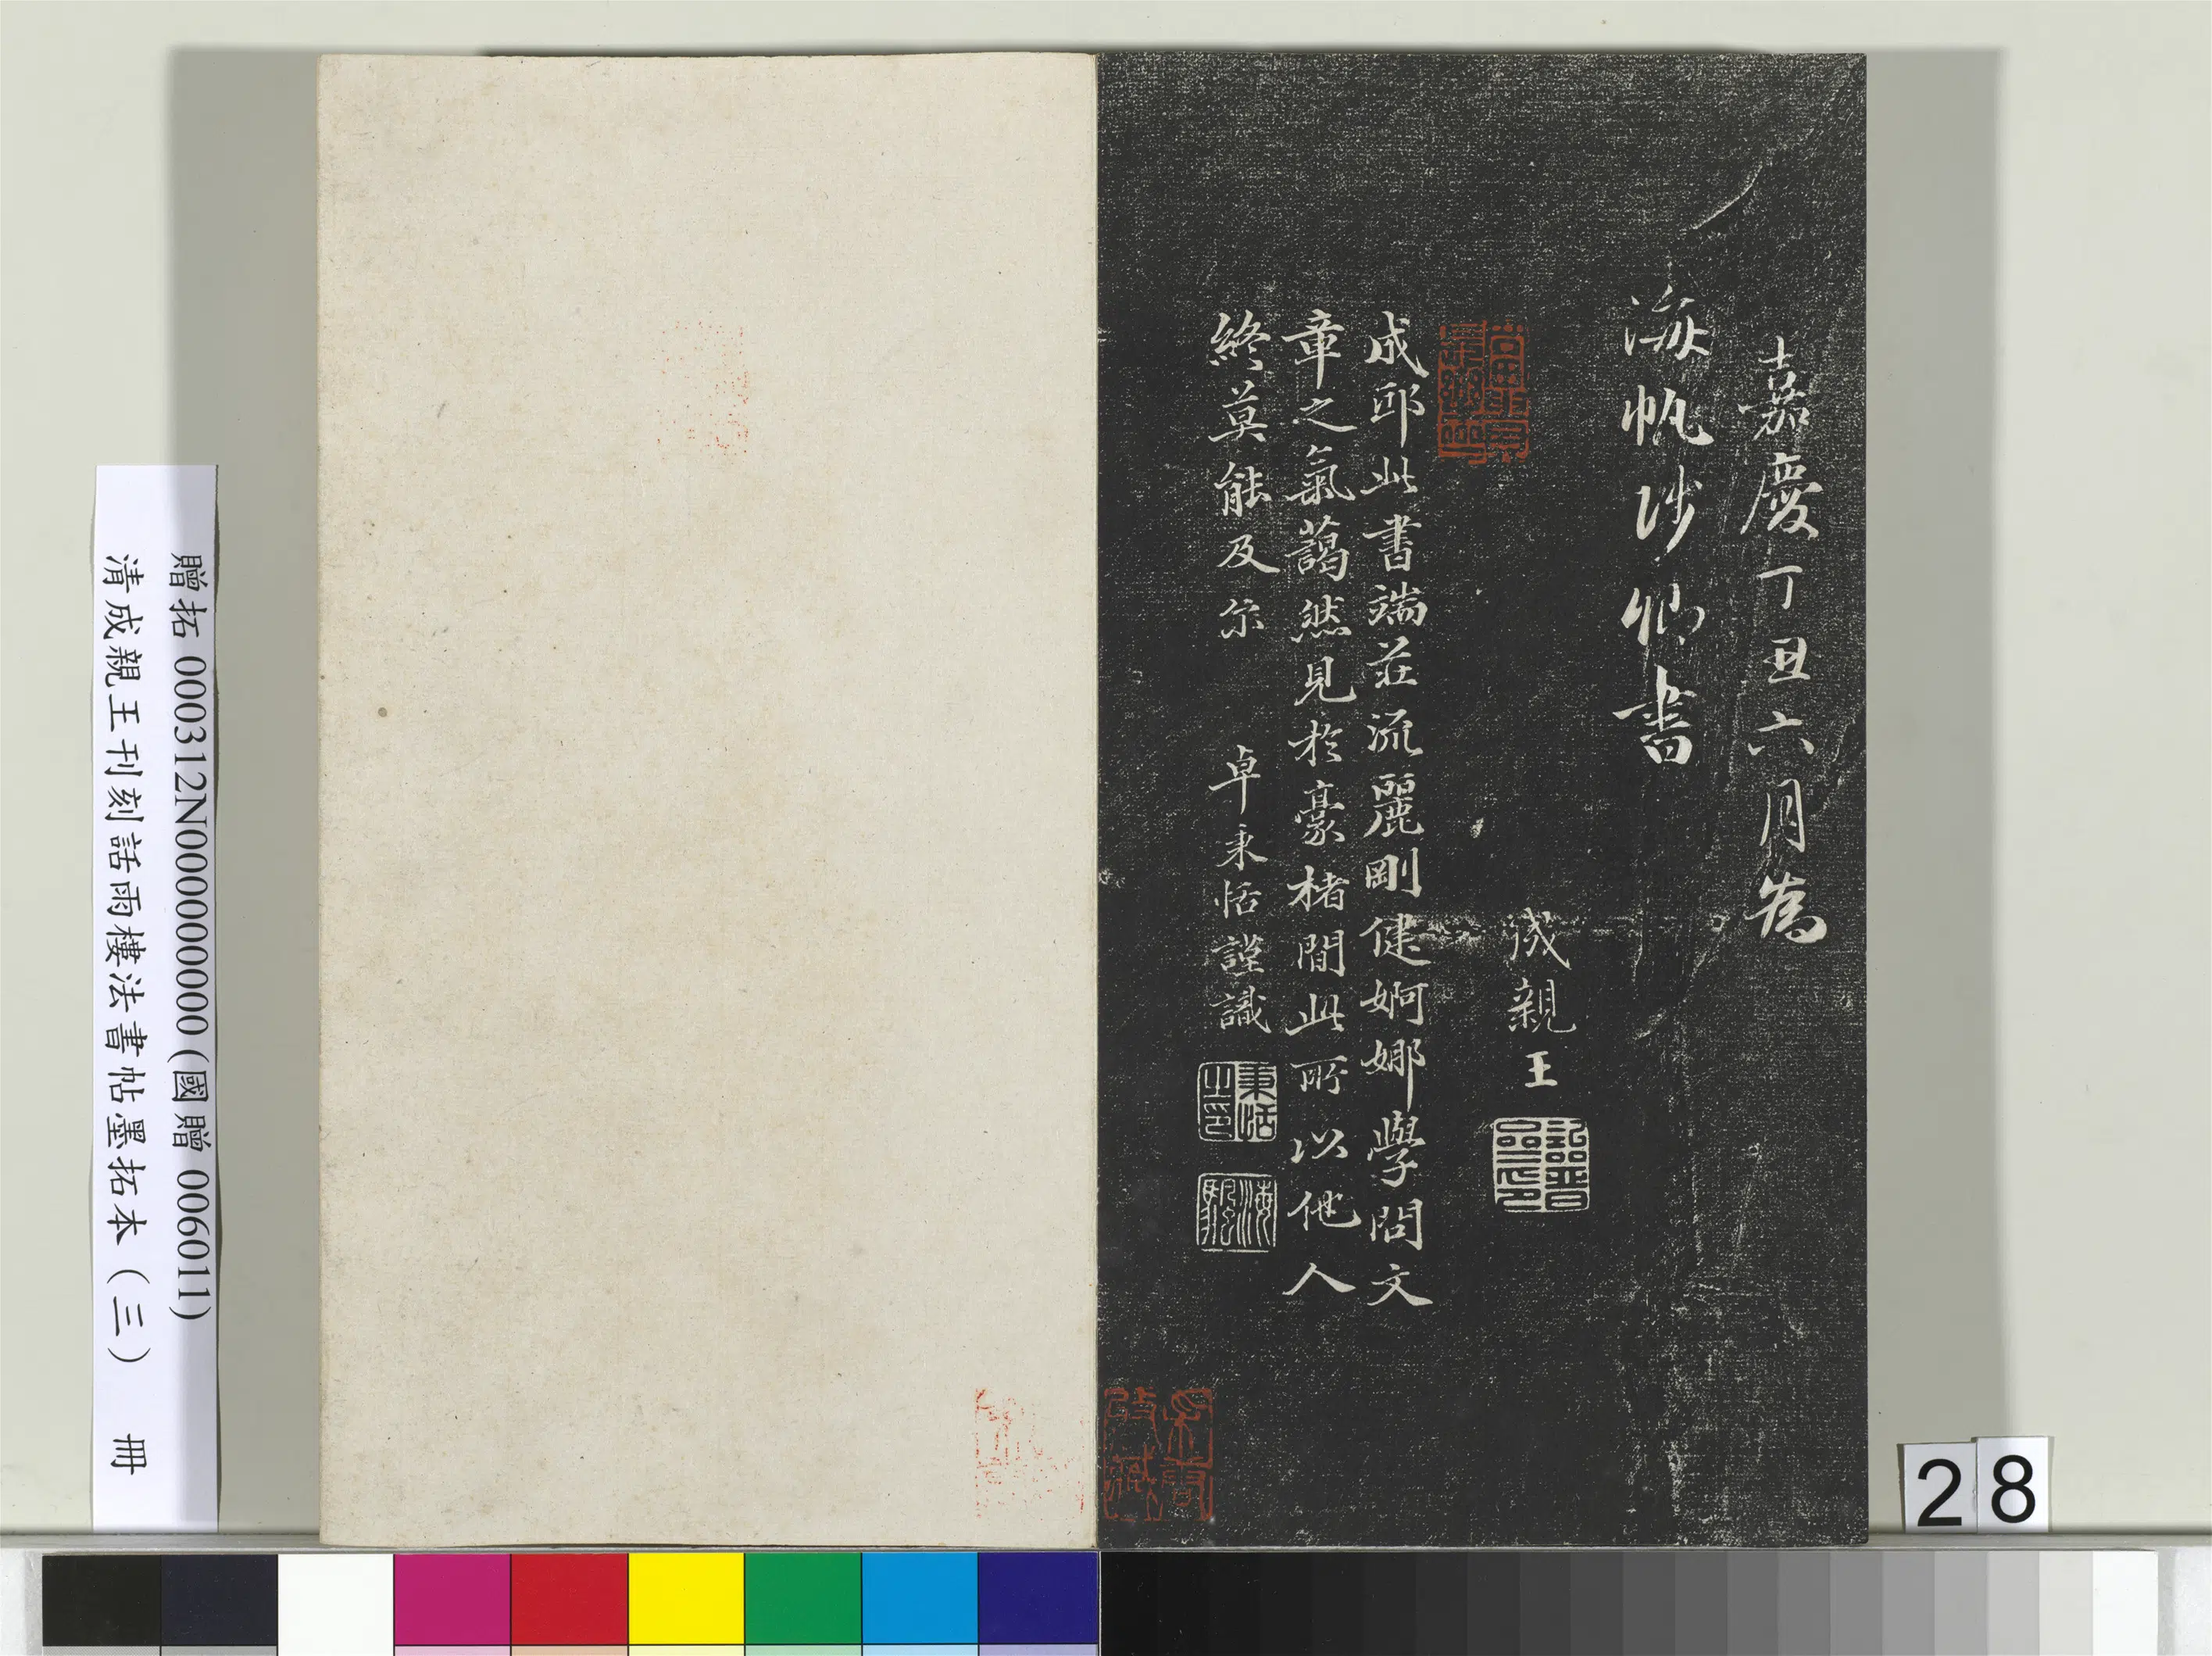 嘉慶丁丑六月為
海帆涉卿書
成親王
成邸此書端莊流麗剛健婀娜學問文
章之氣藹然見於豪楮間此所以他人
終莫能及尔 卓秉恬謹識
秉恬之印
海馭
贈拓 000312N000000000 (國贈 006011)
清成親王刊刻話雨樓法書帖墨拓本(三) 冊
28